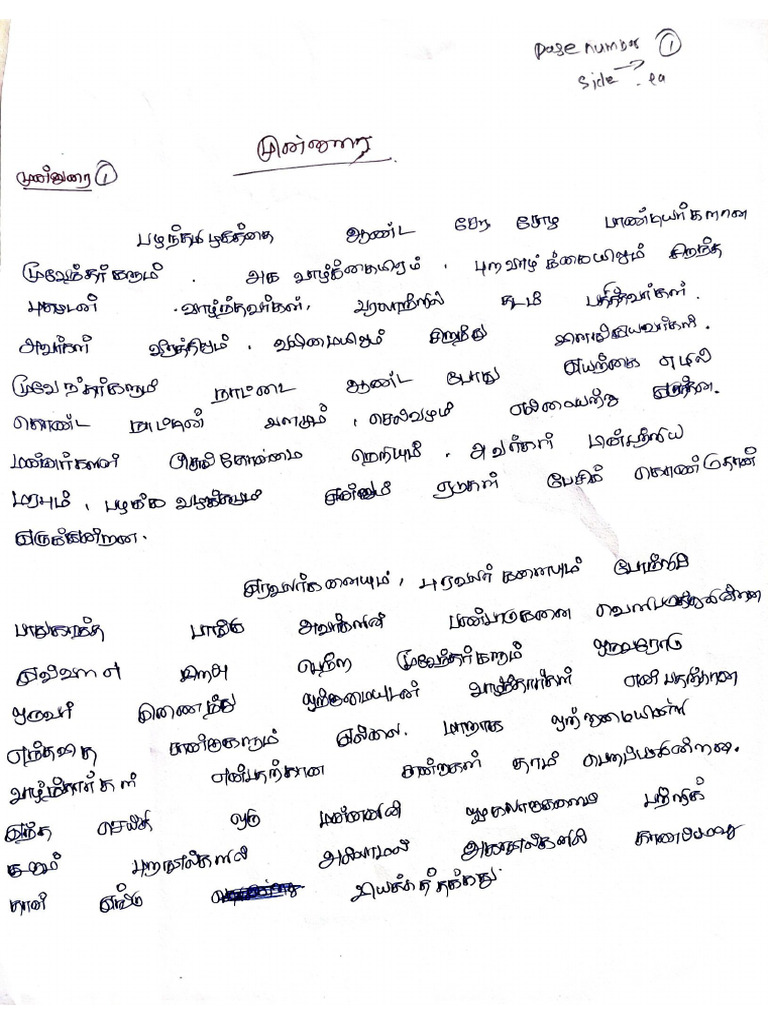 Page number ①
side → .ea
முன்னுரை
முன்னுரை ①
பழந்தமிழகத்தை ஆண்ட சேர சோழ பாண்டியர்களான
மூவேந்தர்களும் . அக வாழ்க்கையிலும் , புறவாழ்க்கையிலும் சிறந்த
புகழுடன் வாழ்ந்தவர்கள், வரலாற்றில் தடம் பதித்தவர்கள்.
அவர்கள் வீரத்திலும் , வலிமையிலும் சிறந்து விளங்கியவர்கள்.
மூவேந்தர்களும் நாட்டை ஆண்ட போது இயற்கை எழில்
கொண்ட நாட்டின் வளமும் , செல்வமும் எல்லையற்று இருந்தன.
மன்னர்களின் செங்கோன்மை நெறியும் , அவர்கள் பின்பற்றிய
மரபும் , பழக்க வழக்கமும் இன்னும் ஏடுகள் பேசிக் கொண்டுதான்
இருக்கின்றன.
இரவலர்களையும் , புரவலர்களையும் போற்றிப்
பாதுகாத்த பாங்கு அவர்களின் பண்பாடுகளை வெளிபடுத்துகின்றன
இவ்வளவு சிறப்பு பெற்ற மூவேந்தர்களும் ஒருவரோடு
ஒருவர் இணைந்து ஒற்றுமையுடன் வாழ்ந்தார்கள் என்பதற்கான
எந்தவித சான்றுகளும் இல்லை. மாறாக ஒற்றுமையின்றி
வாழ்ந்தார்கள் என்பதற்கான சான்றுகள் தாம் பெறப்படுகின்றன.
இந்த செய்தி ஒரு மன்னனின் ஒழுகலாறுகளைப் பற்றிக்
கூறும் புறநூல்களில் அல்லாமல் அகநூல்களில் காணப்படுவது
தான் இங்கு வியக்கத்தக்கது.